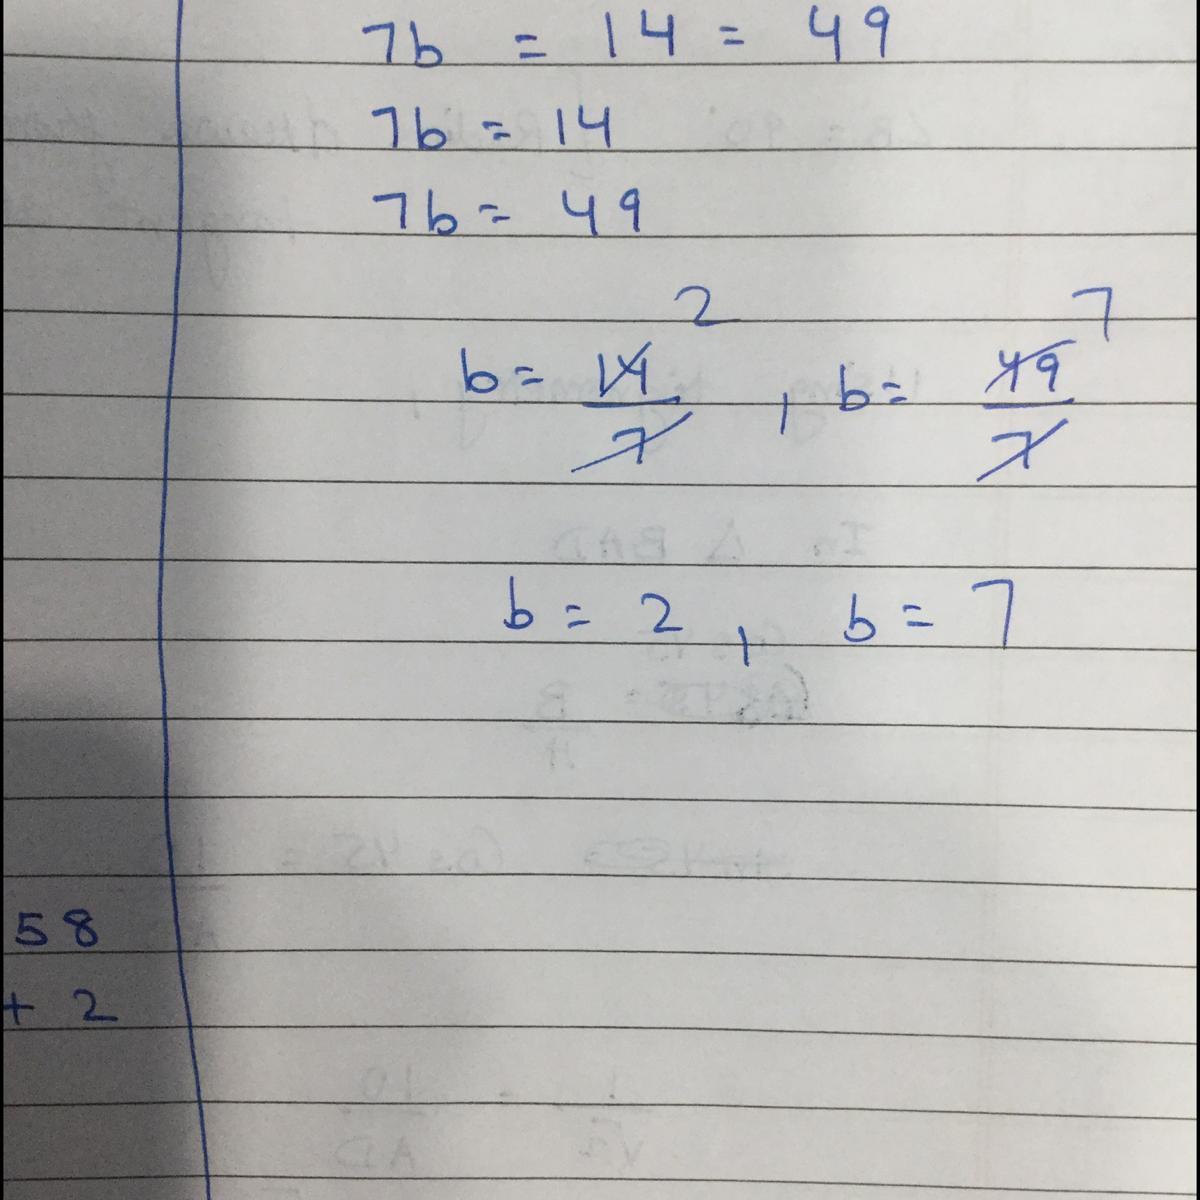 7b = 14 = 49
7b = 14
7b = 49
2 7
b = 14/7 , b = 49/7
b = 2 , b = 7
58
+ 2